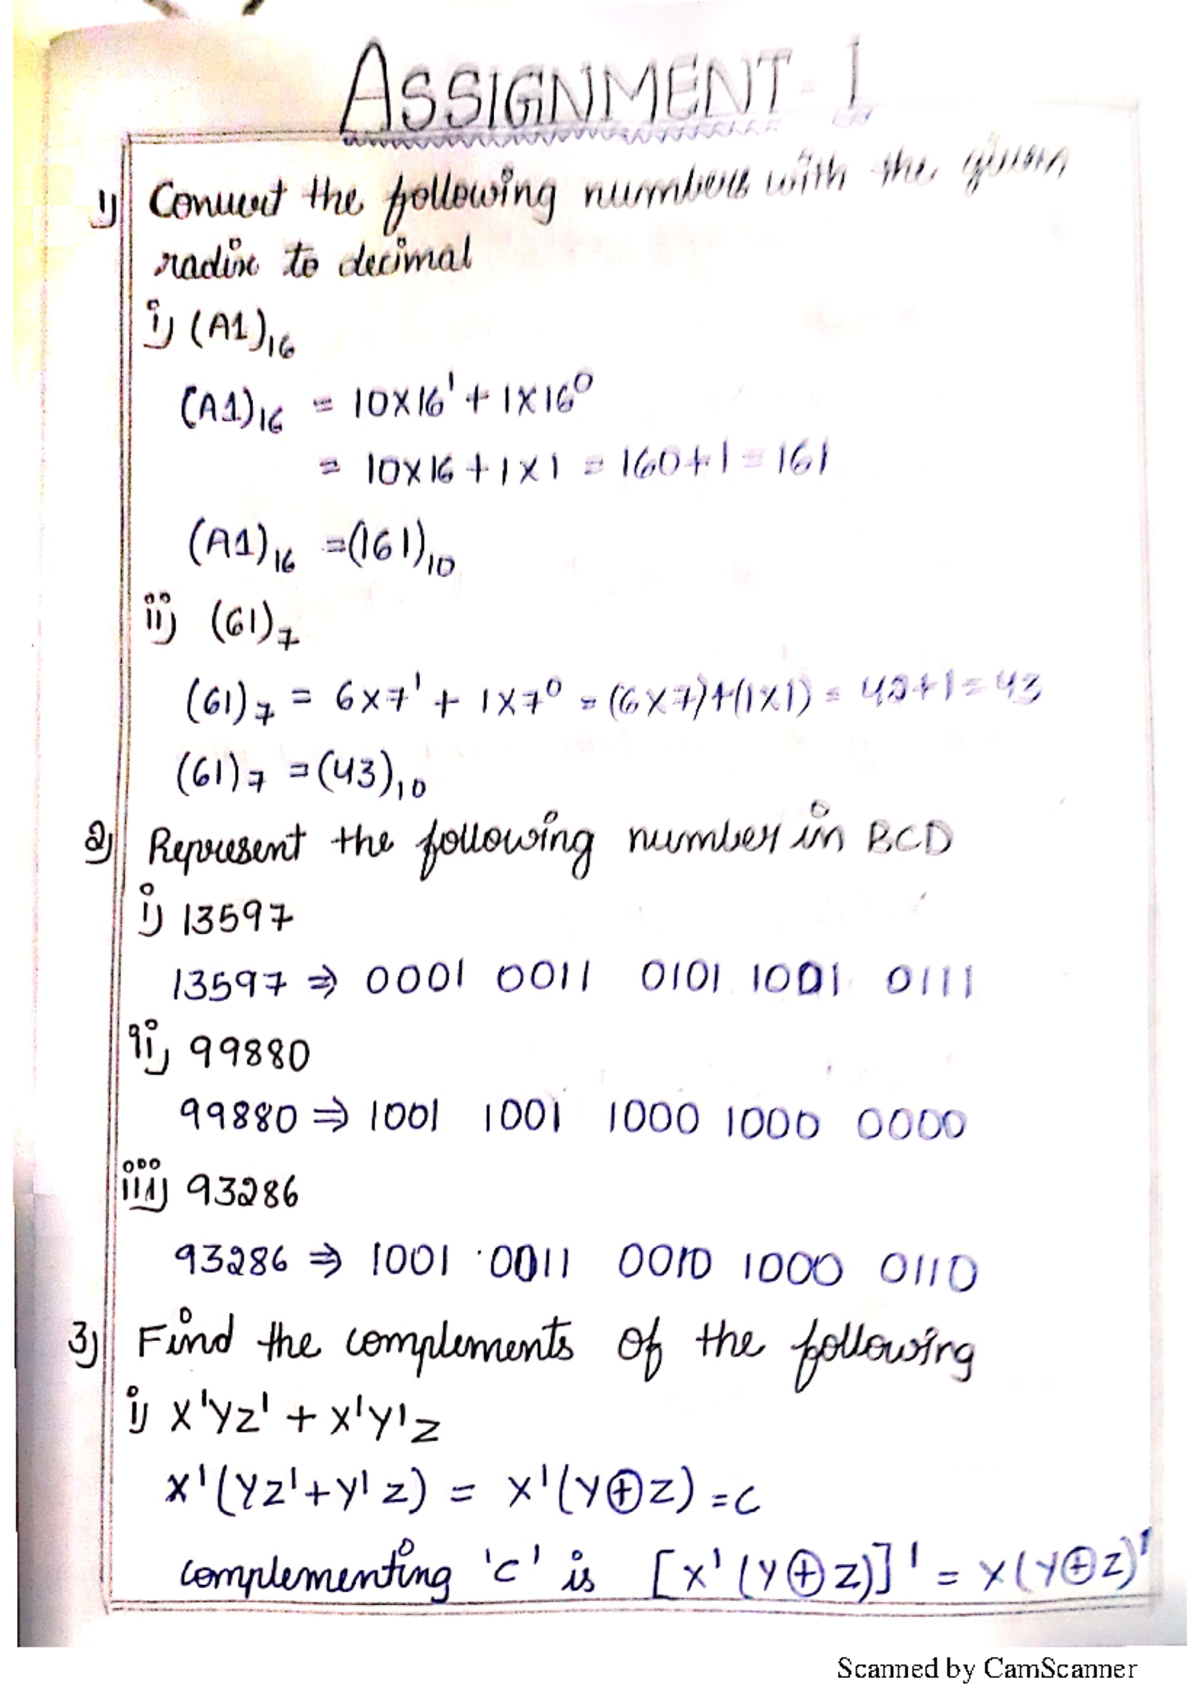 ASSIGNMENT - 1
1) Convert the following numbers with the given
radix to decimal
i) (A1)₁₆
(A1)₁₆ = 10×16¹ + 1×16⁰
= 10×16 + 1×1 = 160+1 = 161
(A1)₁₆ = (161)₁₀
ii) (61)₇
(61)₇ = 6×7¹ + 1×7⁰ = (6×7)+(1×1) = 42+1 = 43
(61)₇ = (43)₁₀
2) Represent the following number in BCD
i) 13597
13597 ⇒ 0001 0011 0101 1001 0111
ii) 99880
99880 ⇒ 1001 1001 1000 1000 0000
iii) 93286
93286 ⇒ 1001 0011 0010 1000 0110
3) Find the complements of the following
i) X'YZ' + X'Y'Z
X'(YZ'+Y'Z) = X'(Y⊕Z) = C
complementing 'C' is [X'(Y⊕Z)]' = X(Y⊕Z)'
Scanned by CamScanner